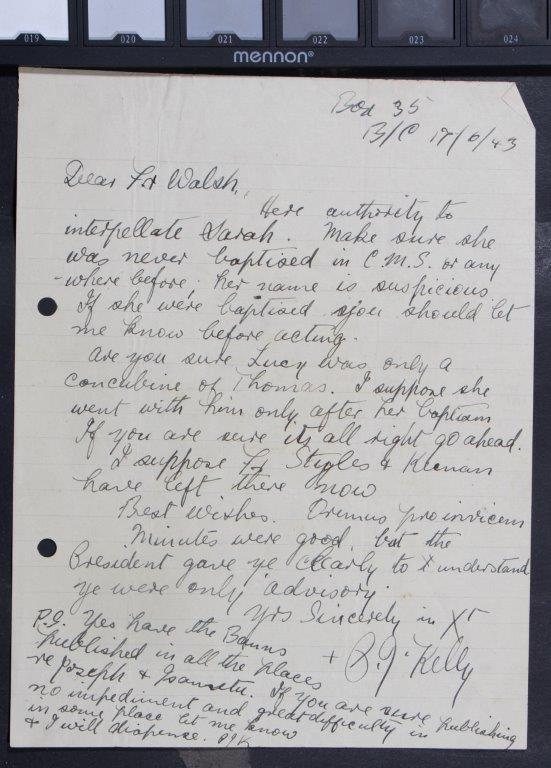 019 020 021 022 023 024
mennon®
Box 35
B/C 17/6/43
Dear Fr Walsh,
Here authority to
interpellate Sarah. Make sure she
was never baptised in C.M.S. or any
-where before; her name is suspicious.
If she were baptised you should let
me know before acting.
Are you sure Lucy was only a
concubine of Thomas. I suppose she
went with him only after her baptism
If you are sure its all right go ahead.
I suppose Fr Styles & Keenan
have left there now
Best wishes. Oremus pro invicem
Minutes were good, but the
President gave ye clearly to understand
ye were only advisory.
Yrs Sincerely in Xt
+ P.J. Kelly
P.S. Yes have the Banns
published in all the places
re Joseph & . If you are sure
no impediment and great difficulty in publishing
in some place let me know
& I will dispense. PJK